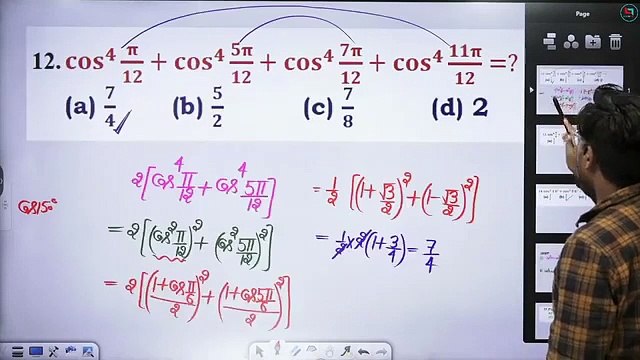 Page
12. cos⁴ π/12 + cos⁴ 5π/12 + cos⁴ 7π/12 + cos⁴ 11π/12 = ?
(a) 7/4 ✓ (b) 5/2 (c) 7/8 (d) 2
cos15°
2[cos⁴ π/12 + cos⁴ 5π/12]
= 2[(cos² π/12)² + (cos² 5π/12)²]
= 2[((1+cos π/6)/2)² + ((1+cos 5π/6)/2)²]
= 1/2 [(1+√3/2)² + (1-√3/2)²]
= 1/2 × 2(1+3/4) = 7/4